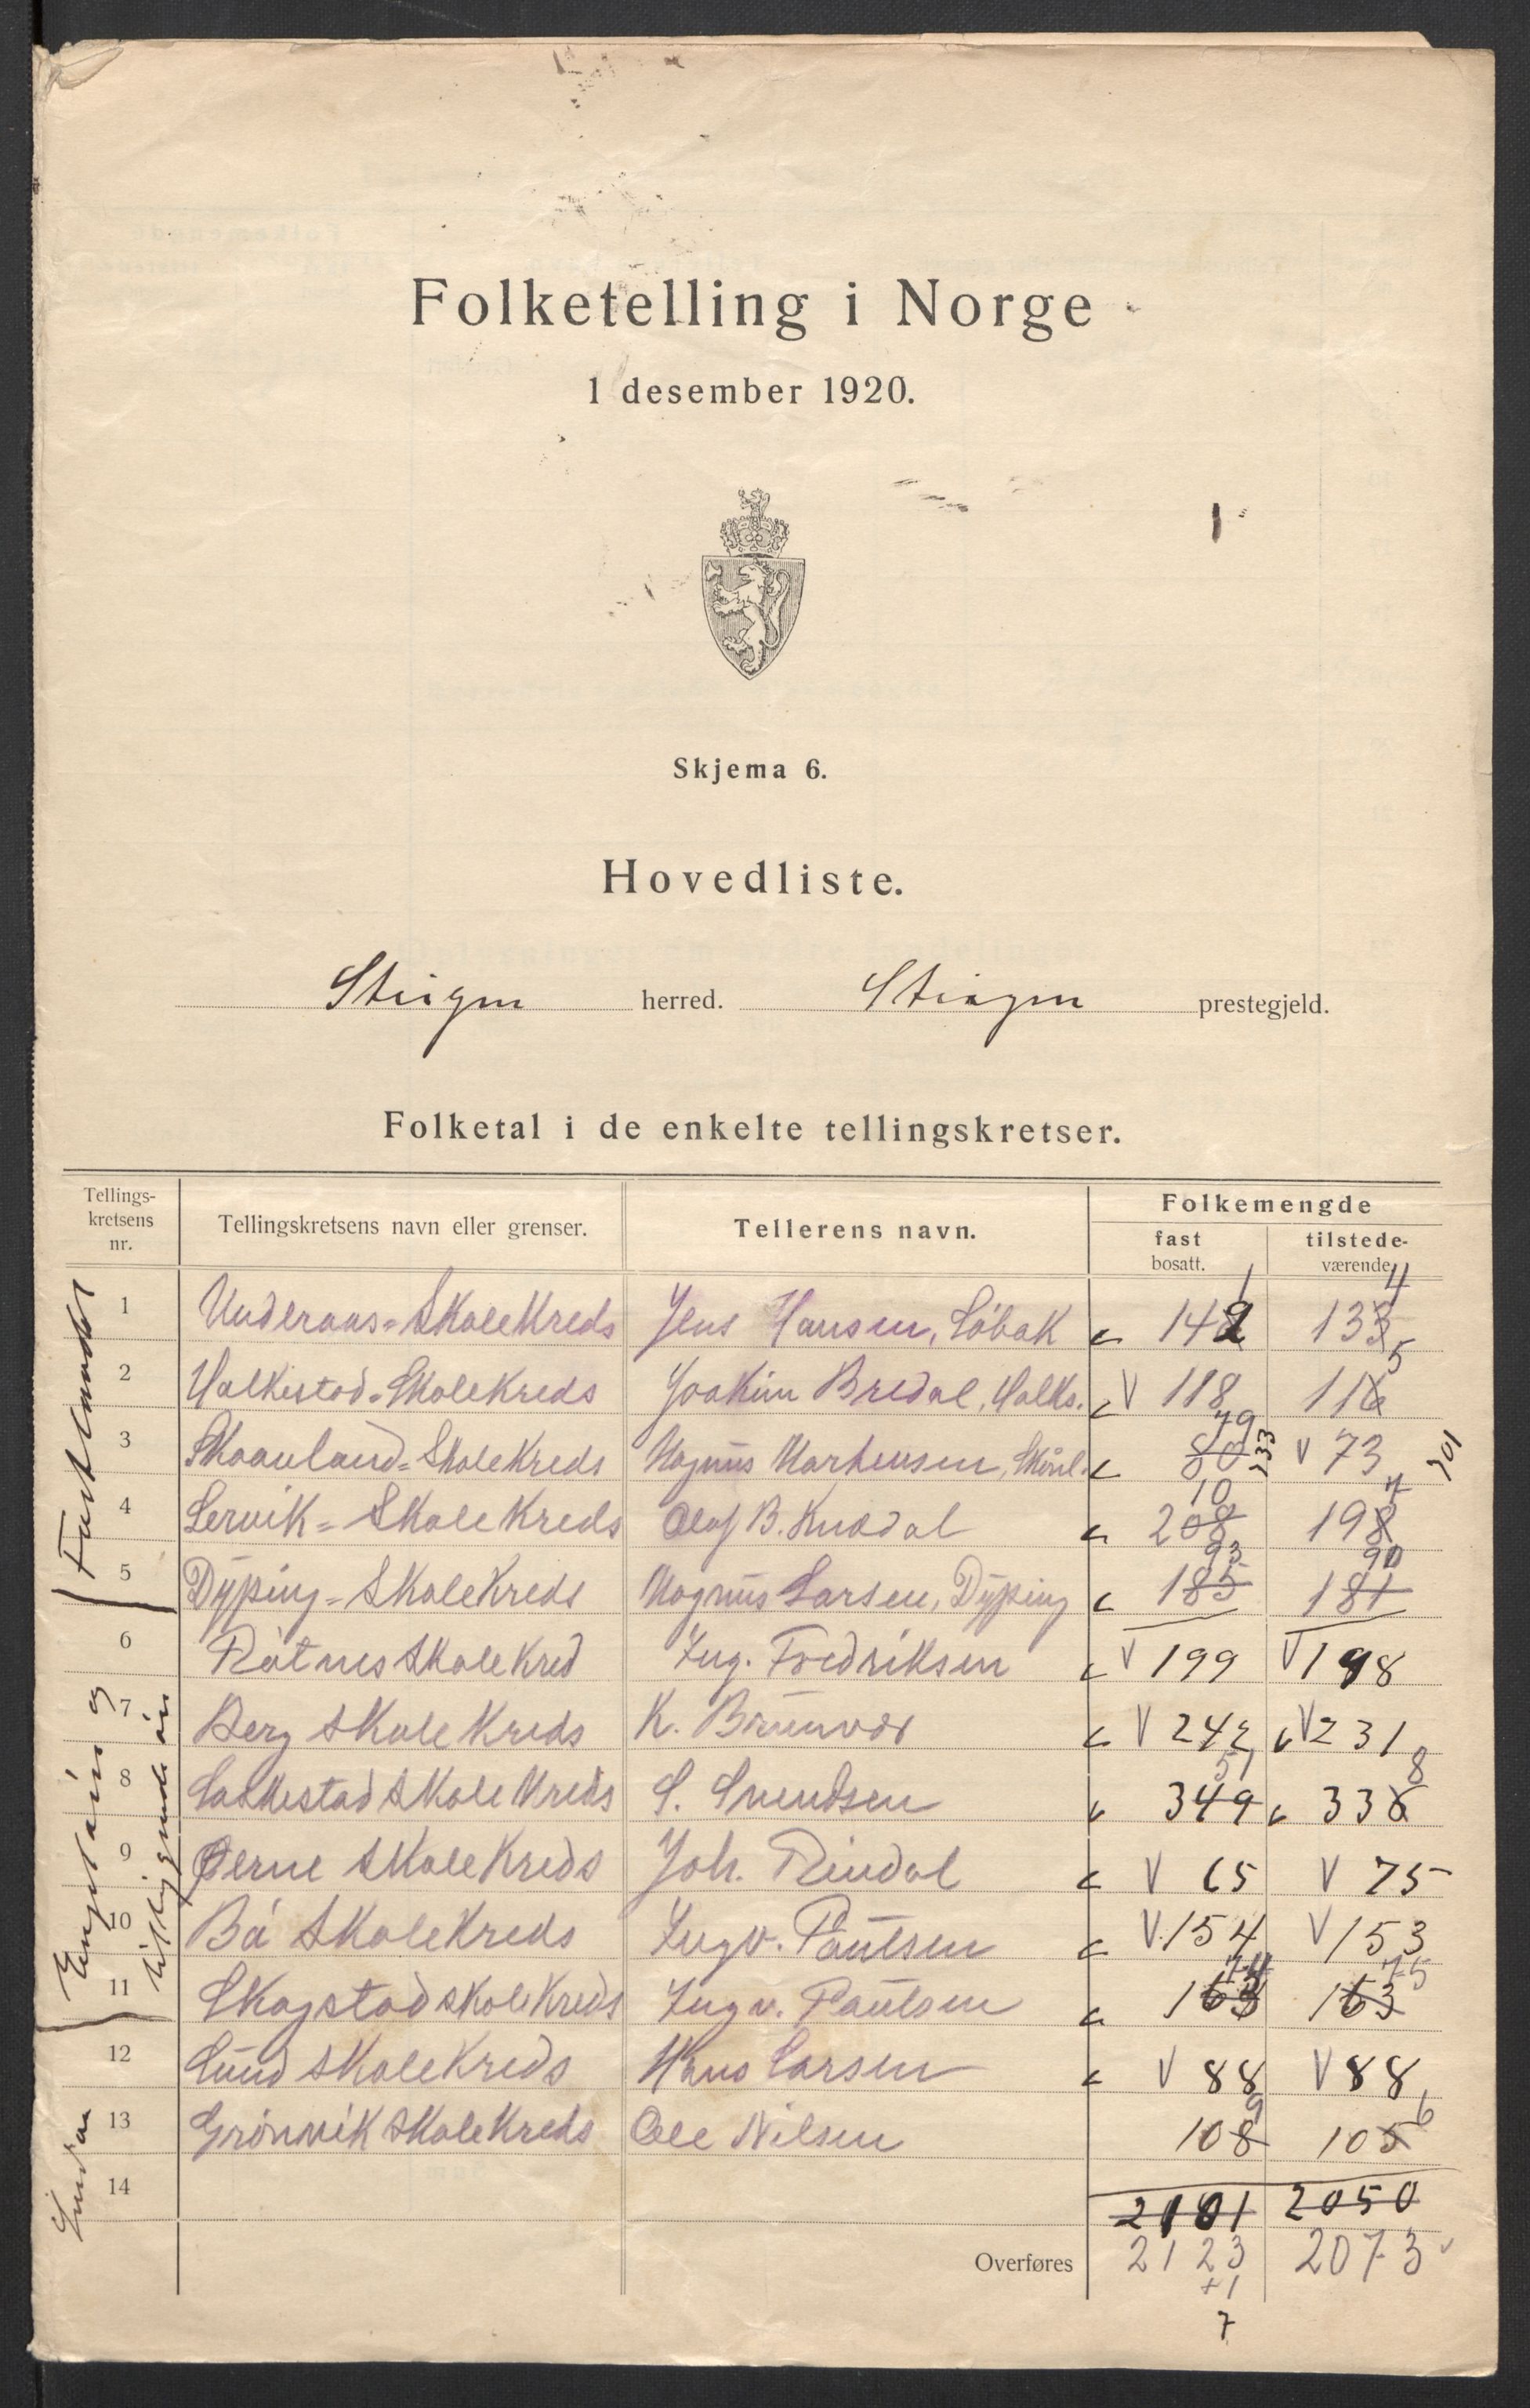 Folketelling i Norge
1 desember 1920.
Skjema 6.
Hovedliste.
Steigen herred. Steigen prestegjeld.
Folketal i de enkelte tellingskretser.
Tellings-kretsens nr. Tellingskretsens navn eller grenser. Tellerens navn. Folkemengde
fast bosatt. tilstede-værende
Fastlandet
1 Underaas-Skolekreds Jens Hansen, Löbak 142 1 133 4
2 Halkistad-Skolekreds Joakim Bredal, Halks. V 118 116 5
3 Skaanland-Skolekreds Magnus Martensen, 80 79 733 V 73 701
4 Lervik-Skolekreds Olaf B. Knædal 208 10 198 7
5 Dyping-Skolekreds Magnus Larsen, Dyping 185 93 181 90
6 Rötnes Skolekred Ing. Fredriksen V 199 V 198
Engeløen og
7 Berg Skolekreds K. Brunvær V 242 V 231
8 Laskestad Skolekreds S. Svendsen 349 51 336 8
9 Øerne Skolekreds Joh. Rindal V 65 V 75
10 Bö Skolekreds Ingv. Paulsen V 154 V 153
11 Skagstad skolekreds Ingv. Paulsen 163 74 163 75
12 Lund Skolekreds Hans Larsen V 88 V 88
13 Grönvik Skolekreds Ole Nilsen 108 9 105 6
14 2101 2050
Overføres 2123 2073
+1
7